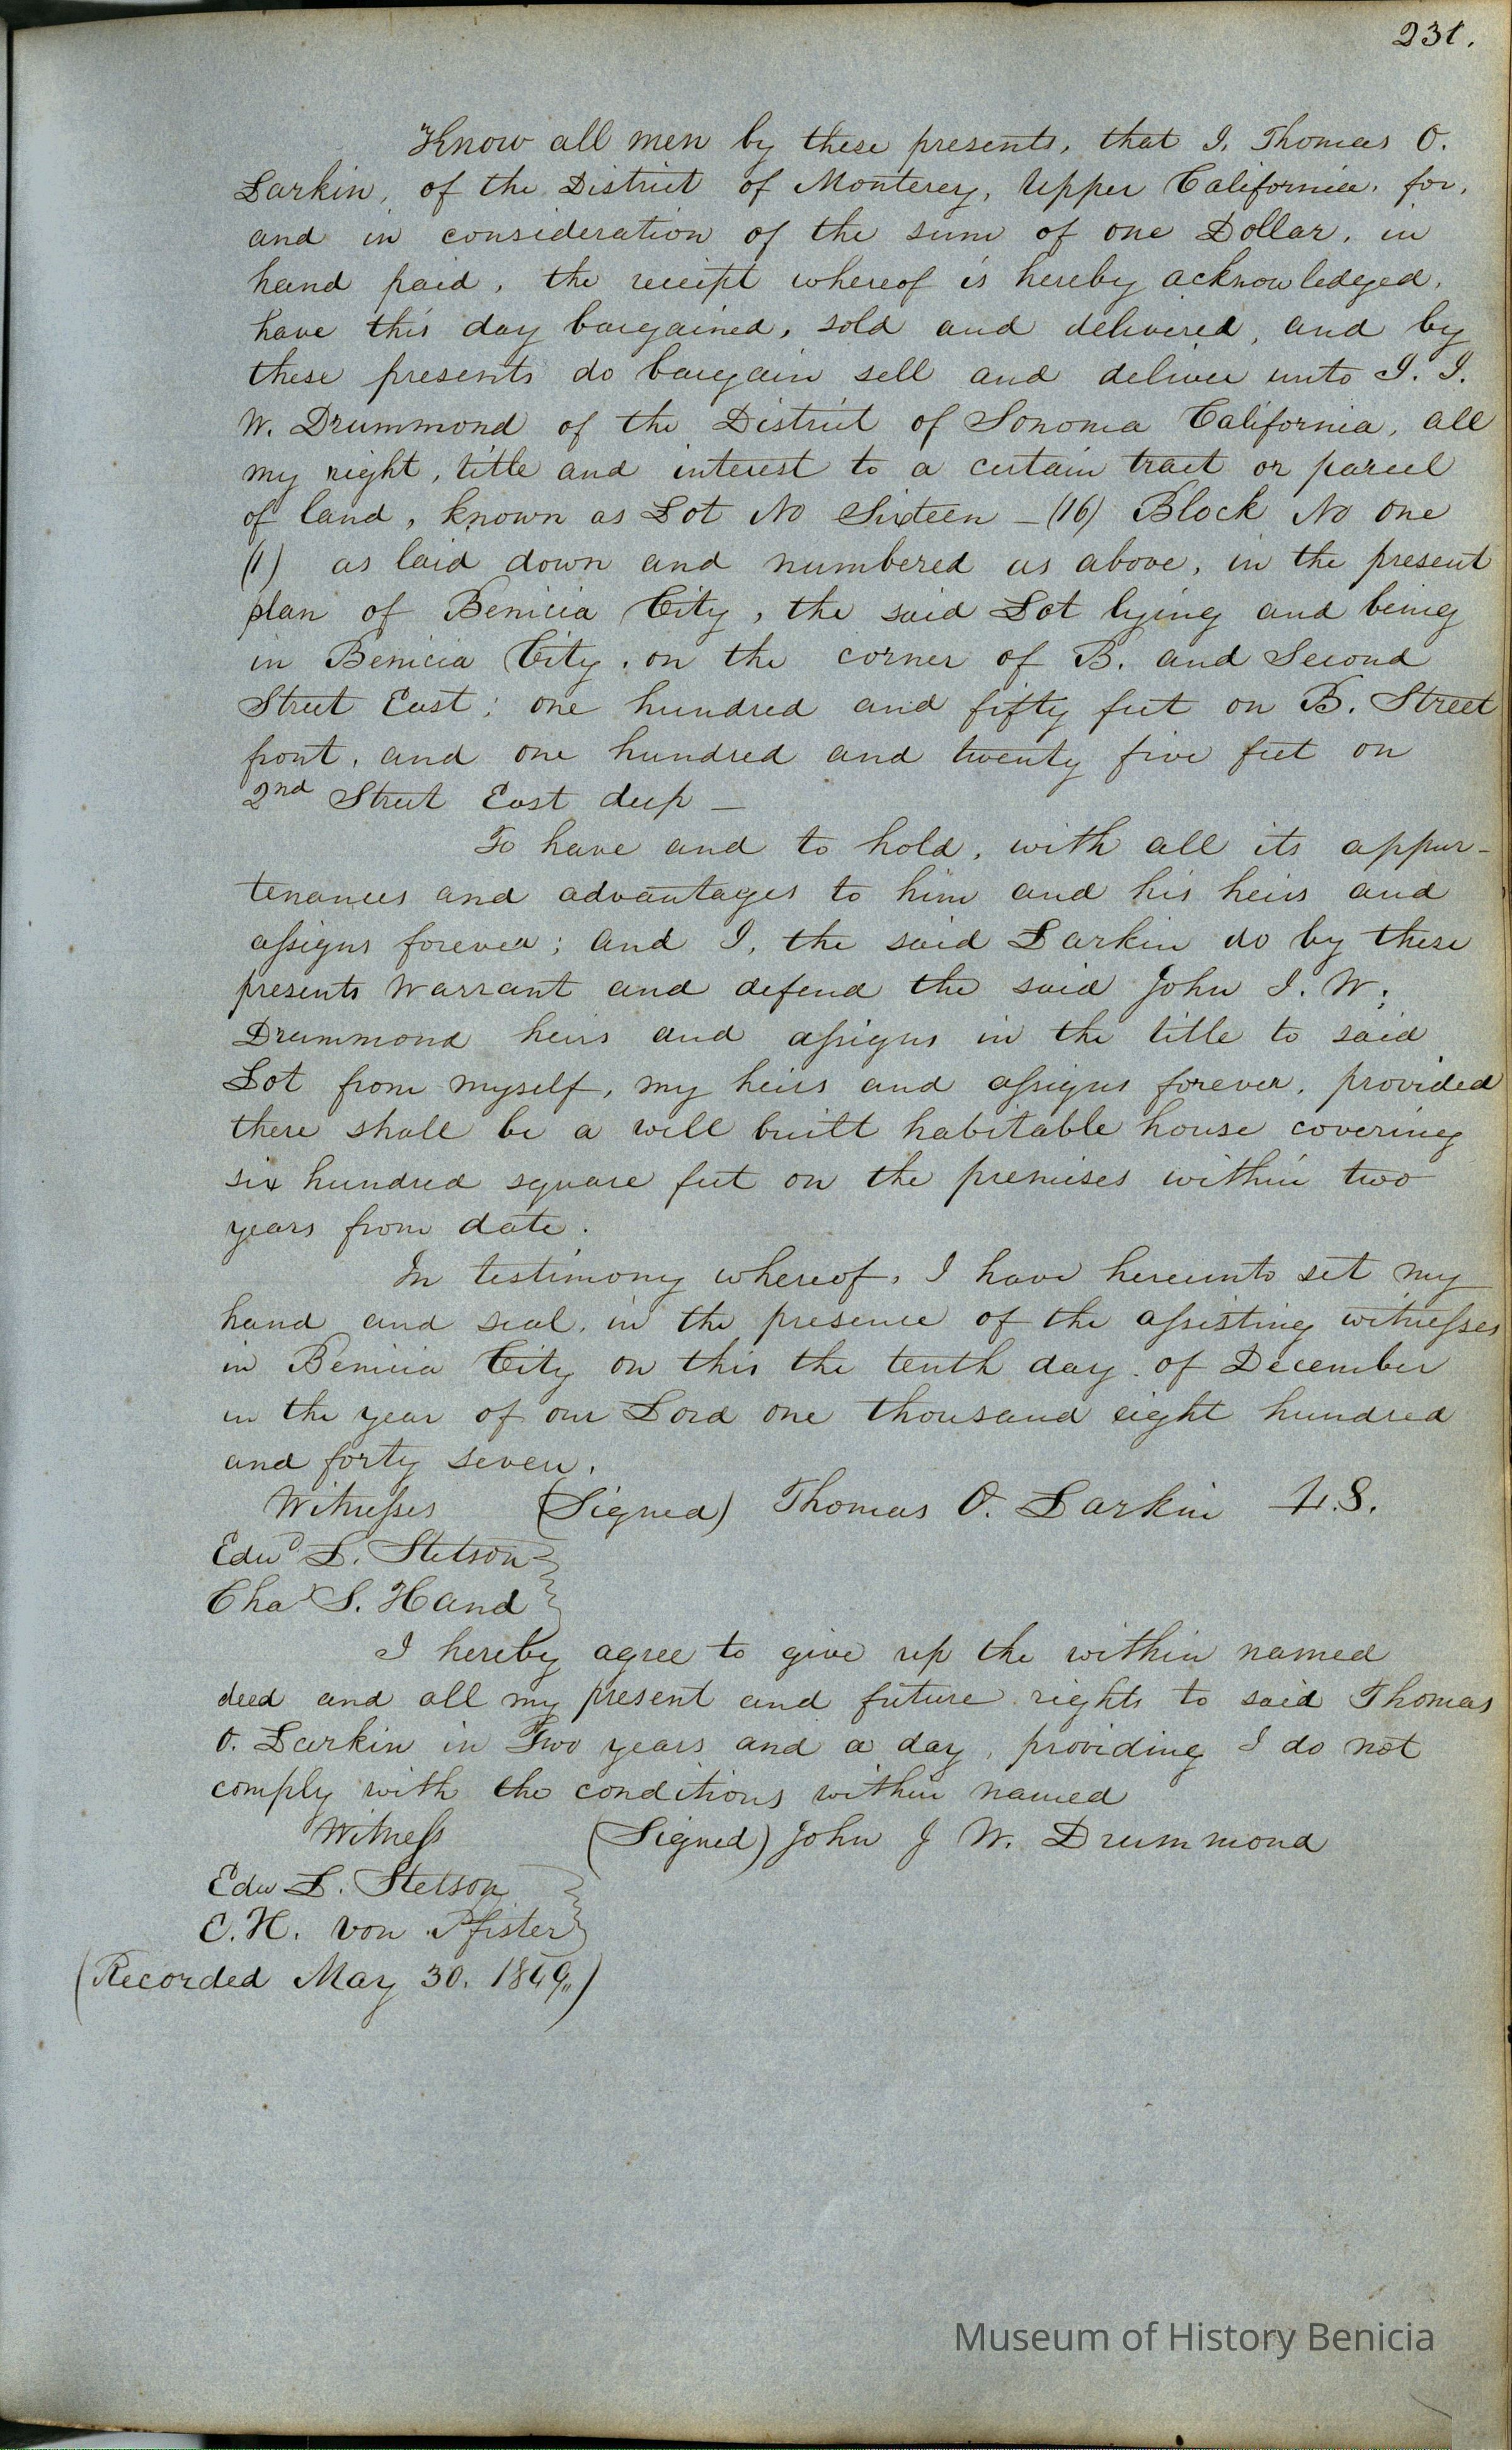 231.
Know all men by these presents, that I, Thomas O.
Larkin, of the District of Monterey, Upper California, for,
and in consideration of the sum of one Dollar, in
hand paid, the receipt whereof is hereby acknowledged,
have this day bargained, sold and delivered, and by
these presents do bargain sell and deliver unto J. J.
W. Drummond of the District of Sonoma California, all
my right, title and interest to a certain tract or parcel
of land, known as Lot No Sixteen – (16) Block No One
(1) as laid down and numbered as above, in the present
plan of Benicia City, the said Lot lying and being
in Benicia City, on the corner of B. and Second
Street East; one hundred and fifty feet on B. Street
front, and one hundred and twenty five feet on
2nd Street East deep –
To have and to hold, with all its appur-
tenances and advantages to him and his heirs and
assigns forever; and I, the said Larkin do by these
presents Warrant and defend the said John J. W.
Drummond heirs and assigns in the title to said
Lot from myself, my heirs and assigns forever, provided
there shall be a well built habitable house covering
six hundred square feet on the premises within two
years from date.
In testimony whereof, I have hereunto set my
hand and seal, in the presence of the assisting witnesses
in Benicia City on this the tenth day of December
in the year of our Lord one thousand eight hundred
and forty seven.
Witnesses (Signed) Thomas O. Larkin L.S.
Edwd L. Stetson
Chas S. Hand
I hereby agree to give up the within named
deed and all my present and future rights to said Thomas
O. Larkin in Two years and a day, providing I do not
comply with the conditions within named
Witness (Signed) John J W. Drummond
Edw L. Stetson
E. H. von Pfister
(Recorded May 30. 1849,,)
Museum of History Benicia